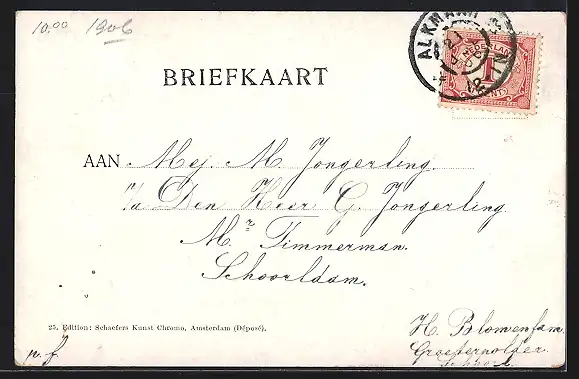 10.00 1906
ALKMAAR
NEDERLAND
1
CENT
BRIEFKAART
AAN Mej. M. Jongerling.
p/a Den Heer G. Jongerling.
Mr Timmerman.
Schoorldam.
25. Edition: Schaefers Kunst Chromo, Amsterdam (Déposé).
p. f.
H. Blomenfam